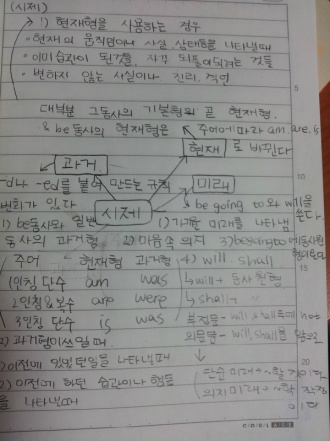 (시제)
1) 현재형을 사용하는 경우
• 현재의 움직임이나 사실, 상태를 나타낼때
• 이미 습관이 된것을, 자꾸 되풀이되는 것들
• 변하지 않는 사실이나 진리, 격언
대부분 그동사의 기본형이 곧 현재형.
& be동사의 현재형은 주어에따라 am, are, is
현재 로 바뀐다
과거
미래
시제
-d나 -ed를 붙여 만드는 규칙
변화가 있다
be going to와 will을
쓴다
1) be동사와 일반
동사의 과거형
주어 현재형 과거형
1인칭 단수 am was
2인칭&복수 are were
3인칭 단수 is was
2) 과거형이 쓰일 때
1) 이전에 있었던일을 나타낼때
2) 이전에 하던 습관이나 행동
을 나타낼때
1) 가까운 미래를 나타냄
2) 마음속 의지 3) be going to에 동사원
4) will, shall
↳ will + 동사원형
↳ shall + "
부정문 - will, shall뒤에 not
의문문 - will, shall을 앞으로
단순미래 → ~할 것이다
의지미래 → ~할 작정
이다
5
10
15
20